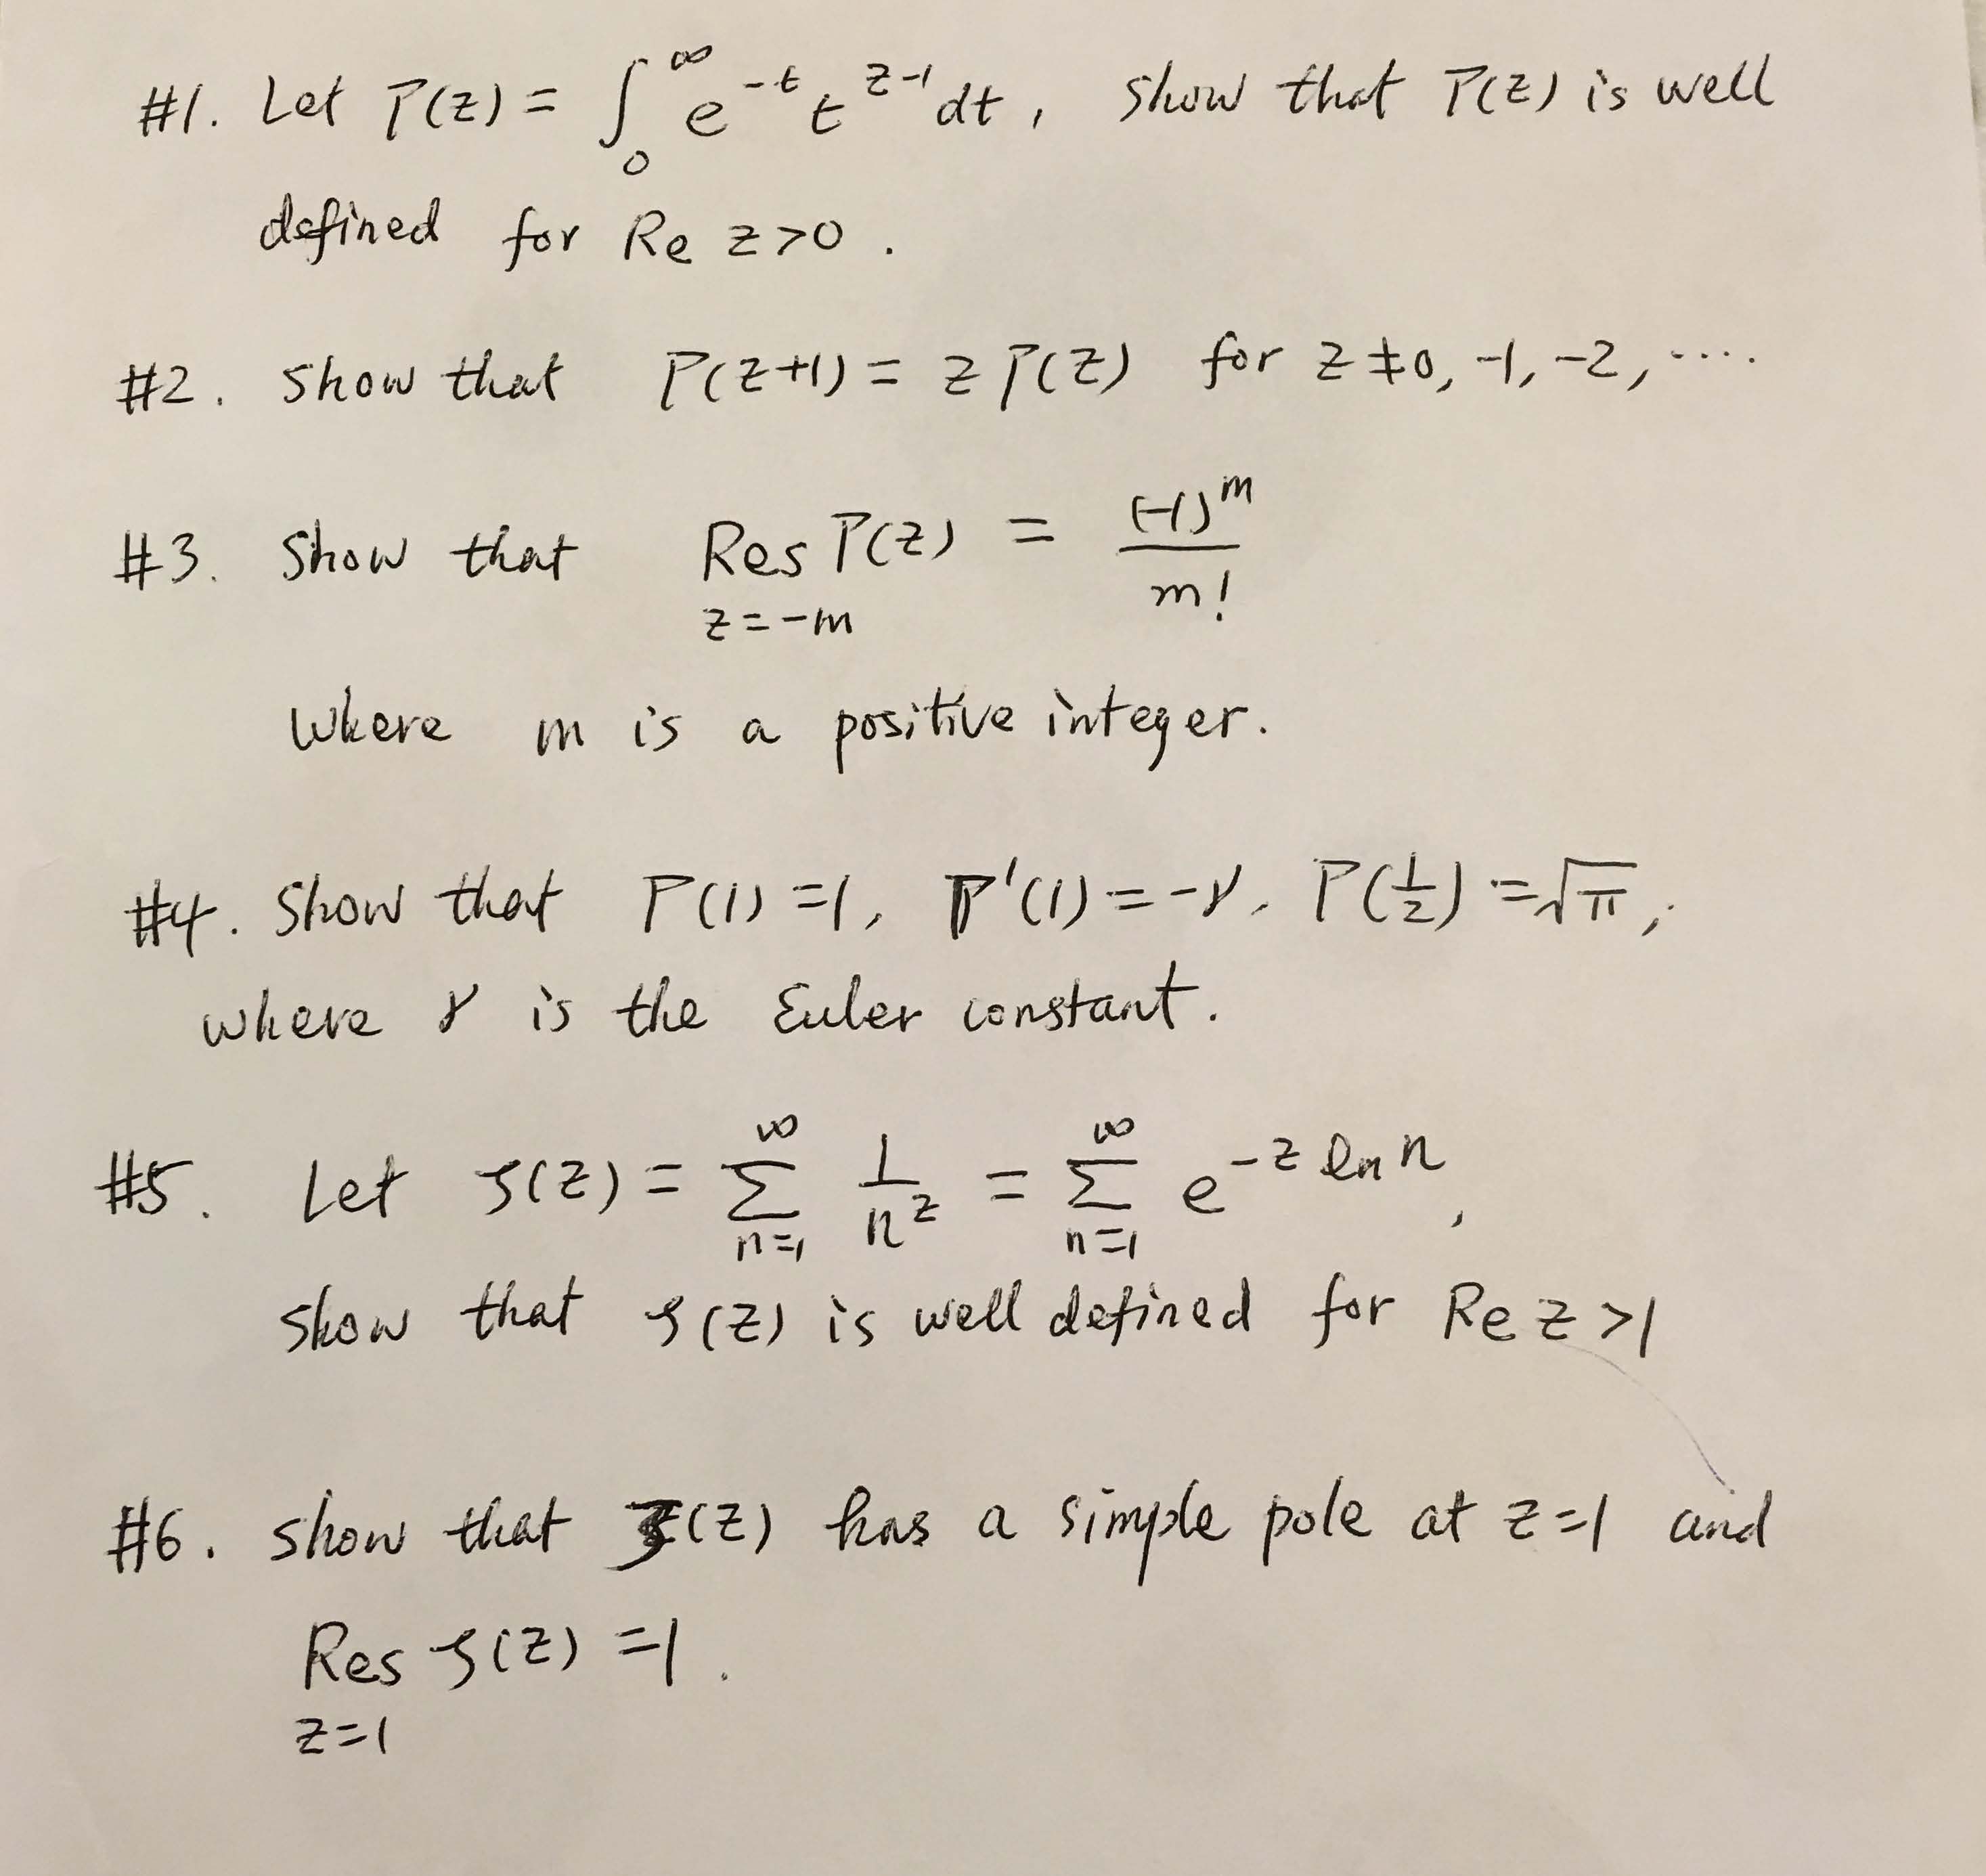 #1. Let Γ(z) = ∫₀^∞ e^{-t} t^{z-1} dt, show that Γ(z) is well
defined for Re z>0.
#2. show that Γ(z+1) = z Γ(z) for z≠0, -1, -2, ....
#3. Show that Res_{z=-m} Γ(z) = (-1)^m / m!
where m is a positive integer.
#4. Show that Γ(1)=1, Γ'(1)=-γ, Γ(1/2)=√π,
where γ is the Euler constant.
#5. Let ζ(z) = ∑_{n=1}^∞ 1/n^z = ∑_{n=1}^∞ e^{-z ln n},
show that ζ(z) is well defined for Re z>1
#6. show that ζ(z) has a simple pole at z=1 and
Res_{z=1} ζ(z) = 1.